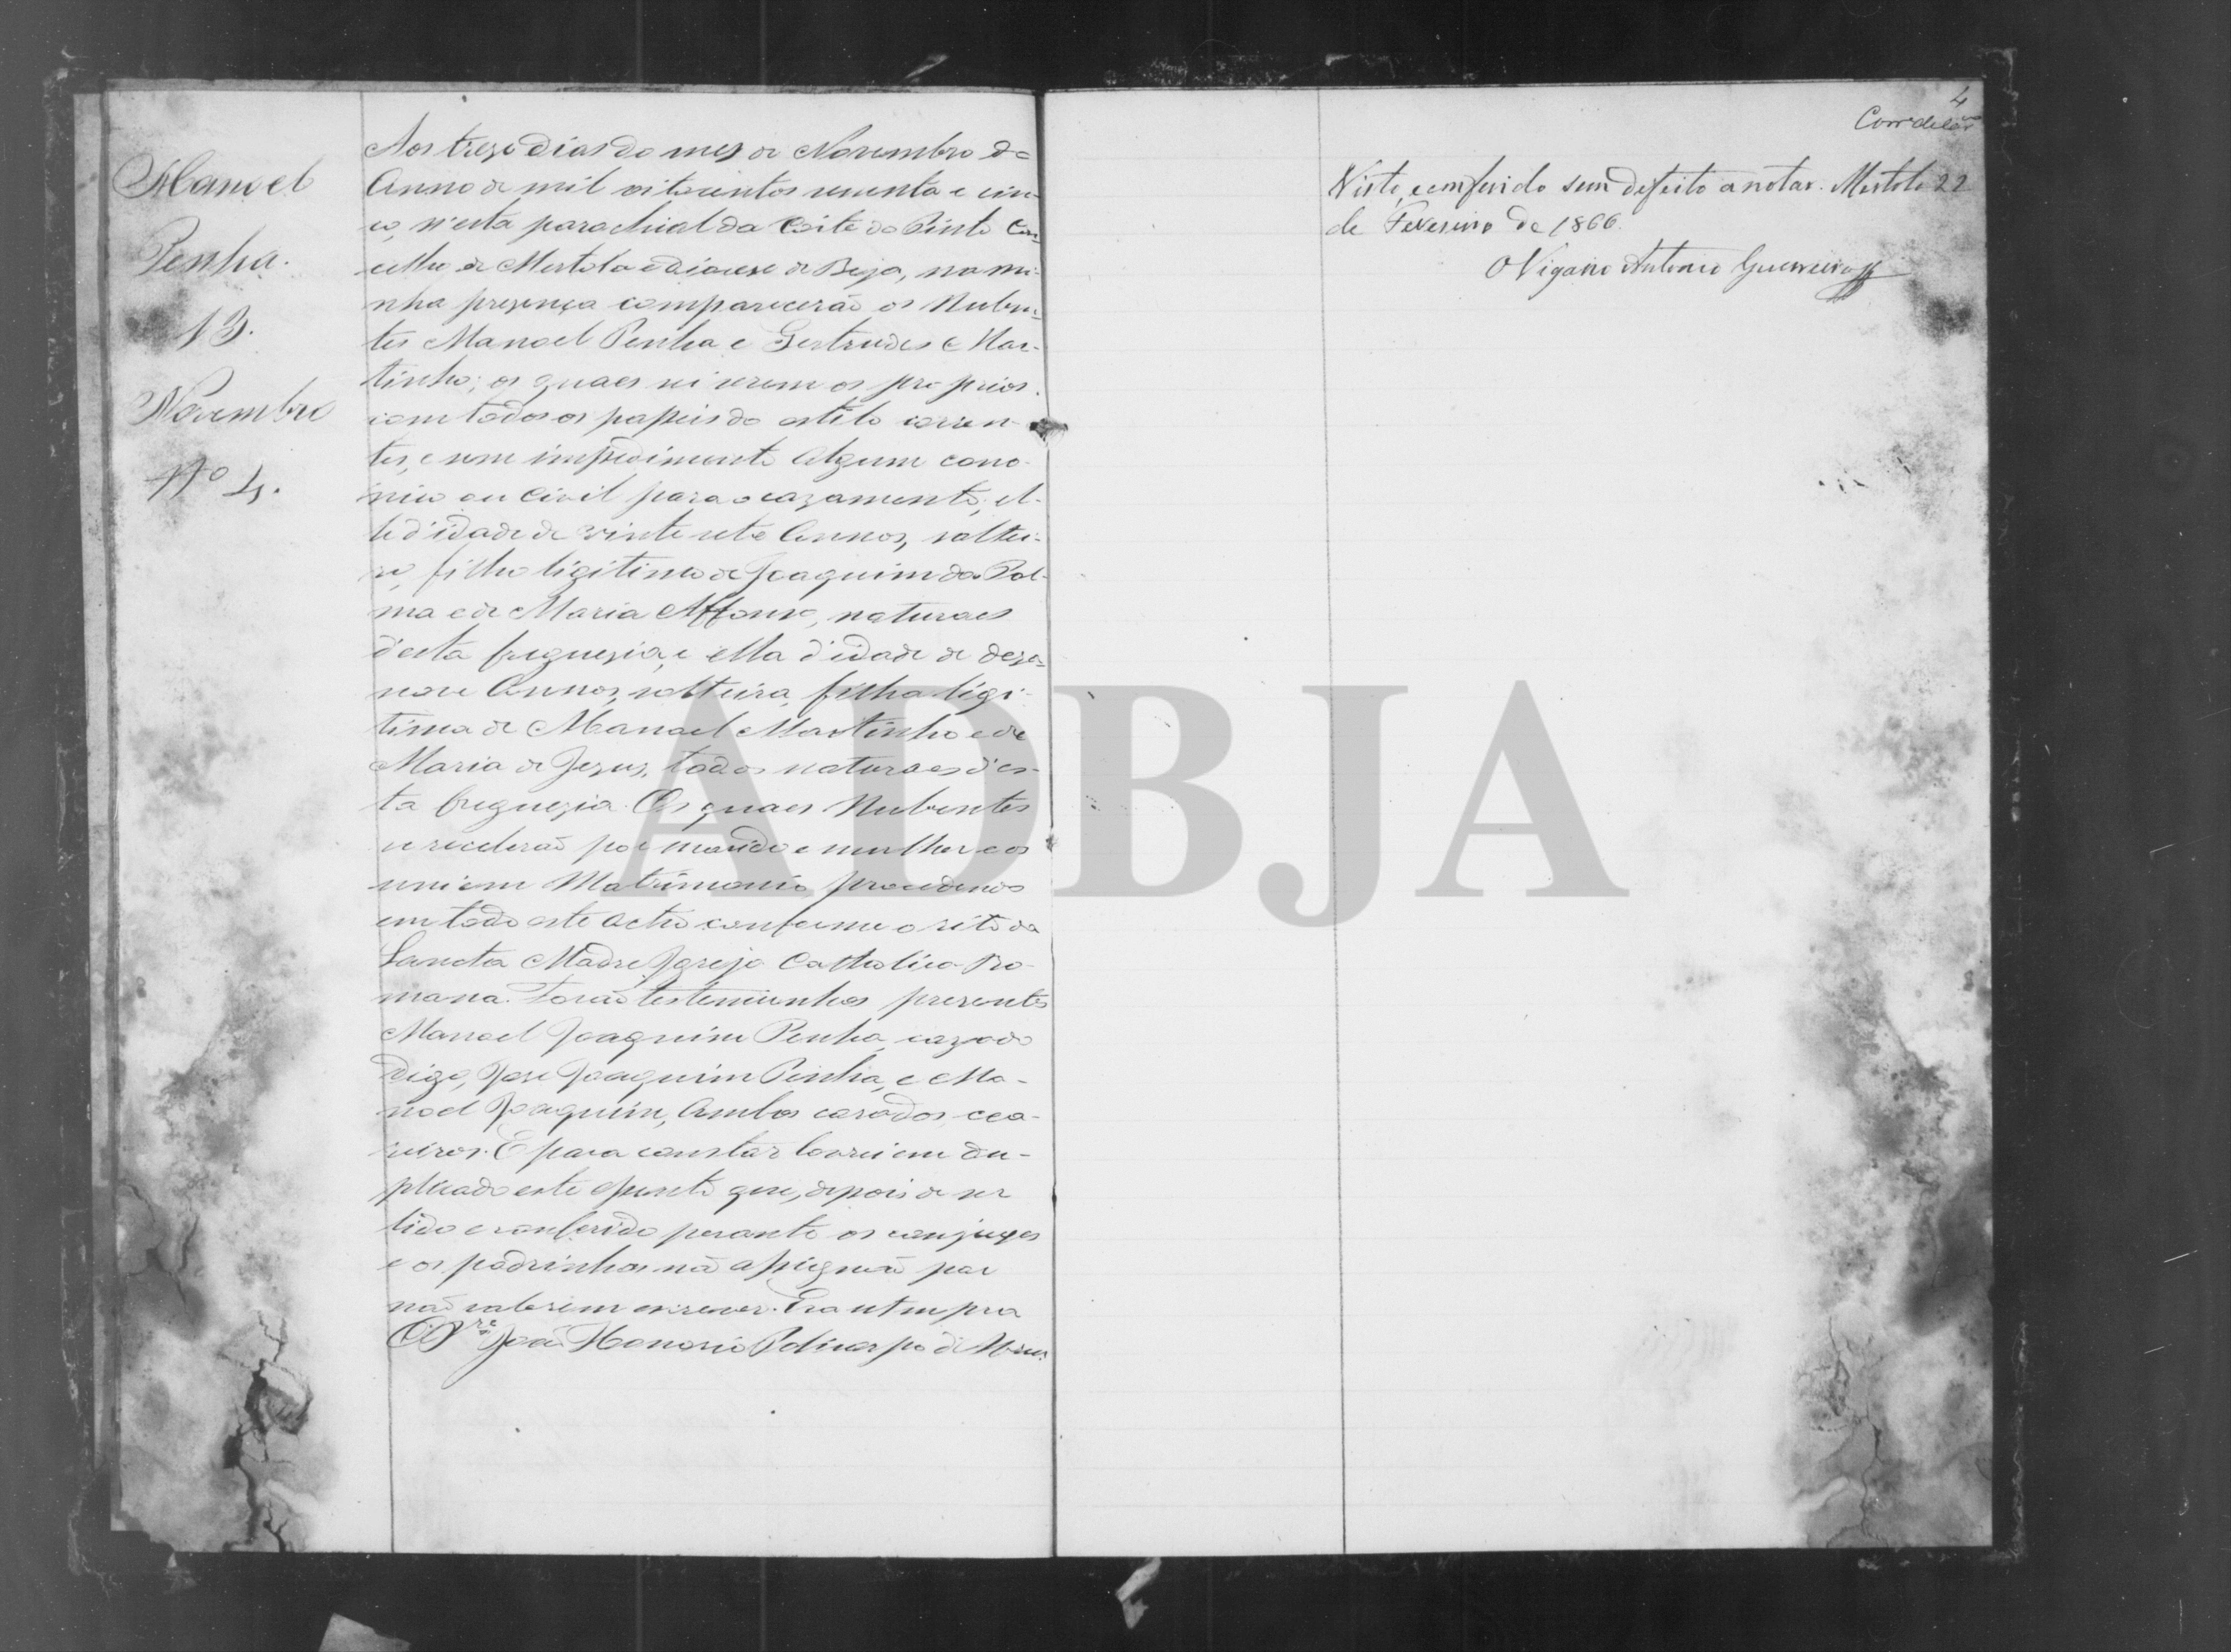 Manoel
Penha.
13.
Novembro
Nº 4.
Aos treze dias do mez de Novembro do
Anno de mil oitocentos secenta e cin-
co, n'esta parochial da Corte do Pinto Con-
celho de Mertola e diocese de Beja, na mi-
nha presença comparecerão os Nuben-
tes Manoel Penha e Gertrudes Mar-
tinho; os quaes sei serem os proprios.
com todos os papeis do estilo corren-
tes, e sem impedimento Algum cano-
nico ou Civil para o cazamento; el-
le d'idade de vinte sete Annos, soltei-
ro, filho ligitimo de Joaquim da Pal-
ma e de Maria Affonso, naturaes
d'esta freguezia, e ella d'idade de deza-
nove Annos, solteira, filha ligi-
tima de Manoel Martinho e de
Maria de Jezus, todos naturaes d'es-
ta freguezia. Os quaes Nubentes
se receberaõ por marido e mulher e os
uni em Matrimonio, procedendo
em todo este acto conforme o rito da
Sancta Madre Igreja Catholica Ro-
mana. Foraõ testemunhas prezentes
Manoel Joaquim Penha, cazado
digo, Jose Joaquim Penha, e Ma-
noel Joaquim, Ambos cazados
E para constar lavrei em du-
plicado este que, depois de ser
lido e conferido perante os conjuges
e os padrinhos naõ por
naõ saberem escrever. Era ut supra
O Pre João Honorio Policarpo
4
Visto, e conferido sem defeito a notar. Mertola 22
de Fevereiro de 1866.
O Vigario Antonio Guerreiro
ADBJA